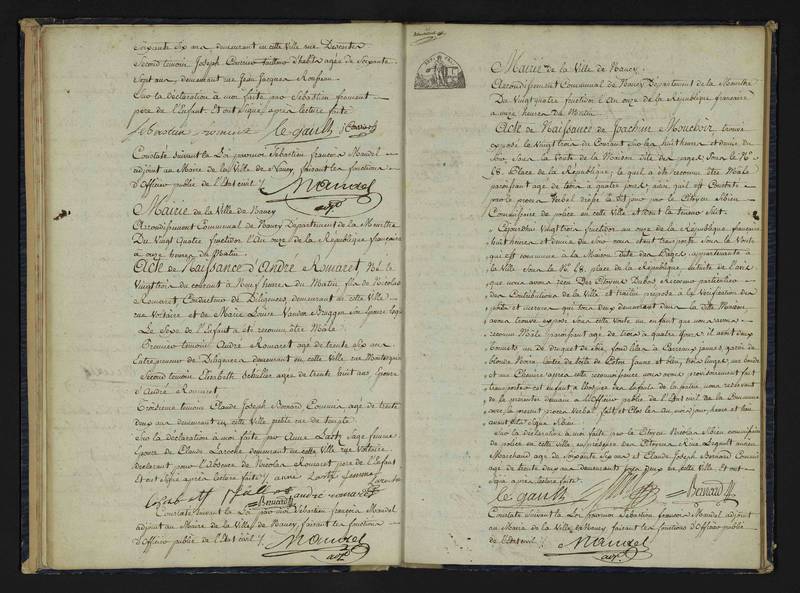 Soixante Six ans, demeurant en cette Ville rue
Second temoin Joseph tailleur d'habits age de Soixante
Sept ans, demeurant rue Jean Jacques Rousseau
Sur la déclaration à moi faite par Sébastien froment
pere de l'Enfant. Et ont Signé après lecture faite
le gault
Constaté Suivant la Loi par moi Sébastien françois Mandel
adjoint au Maire de la Ville de Nancy, faisant les fonctions
d'Officier public de l'Etat civil
Mandel
adjt
Mairie de la Ville de Nancy
Arrondissement Communal de Nancy Département de la Meurthe
Du Vingt Quatre fructidor l'An onze de la République française
à onze heures du Matin
Acte de Naissance d'André Romaret, Né le
Vingt trois du courant à Neuf heures du Matin fils de Nicolas
Romaret, Conducteur de Diligences, demeurant en cette Ville
rue Voltaire et de Marie Louise Vander Bruggen son Epouse
Le Sexe de l'Enfant a été reconnu être Mâle
Premier temoin André Romaret age de trente six ans
Entrepreneur de Diligences demeurant en cette Ville rue Montesquieu
Second temoin Elizabeth agée de trente huit ans Epouse
d'André Romaret
Troisieme temoin Claude Joseph Bernard Commis, agé de trente
deux ans demeurant en cette Ville petite rue de
Sur la déclaration à moi faite par Anne Sage femme
Epouse de Claude Laroche demeurant en cette Ville rue Voltaire
déclarant pour l'Absence de Nicolas Romaret pere de l'Enfant
Et ont Signé après lecture faite anne femme
Laroche
andré romaret
Bernard
Constaté Suivant la Loi par moi Sébastien françois Mandel
adjoint au Maire de la Ville de Nancy, faisant les fonctions
d'Officier public de l'Etat civil
Mandel
adjt
Mairie de la Ville de Nancy
Arrondissement Communal de Nancy Département de la Meurthe
Du Vingt quatre fructidor l'An onze de la République française
à onze heures du Matin
Acte de Naissance de Joachim Mouchoir, trouvé
exposé le Vingt trois du Courant Sur les huit heures et demie du
Soir, Sous la Voute de la Maison dite des pages Sous le No
68. Place de la République, lequel a été reconnu être Mâle
paroissant age de trois à quatre jours, ainsi qu'il est Constaté
par le procès Verbal dressé le dit jour par le Citoyen
Commissaire de police en cette Ville et dont la teneur Suit.
Cejourd'hui Vingt trois fructidor an onze de la République française
huit heures et demie du Soir nous étant transporté Sous la Voute
qui est commune à la Maison dite des Pages appartenante à
la Ville Sous le No 68. place de la République, ensuite de l'avis
que nous avons reçu Des Citoyens Dubois Receveur particulier
des Contributions de la Ville et préposé à la Vérification des
poids et mesures qui tous deux demeurent dans la dite Maison,
avons trouvé exposé Sous cette Voute un enfant que nous avons
reconnu Mâle paroissant agé de trois à quatre jours il avoit deux
bonnets un de droguet de Soie fond lilas à Carreaux jaunes, garni de
blonde Noire de Coton Jaune et bleu, trois langes une bande
et une Chemise après cette reconnoissance nous avons provisoirement fait
transporter cet enfant à l'hospice des Enfants de la patrie nous reservant
de le présenter demain à l'Officier public de l'Etat civil de la Commune
avec le present procès Verbal fait et clos les an mois jour, heure et lieu
avant dits Signé
Sur la déclaration à moi faite par le Citoyen Nicolas commissaire
de police en cette Ville, en présence des Citoyens ancien
Marchand age de Soixante Six ans et Claude Joseph Bernard Commis
agé de trente deux ans demeurants tous deux en cette Ville. Et ont
Signé après lecture faite
le gault
Bernard
Constaté Suivant la Loi par moi Sébastien françois Mandel adjoint
au Maire de la Ville de Nancy faisant les fonctions d'Officier public
de l'Etat civil
Mandel
adjt